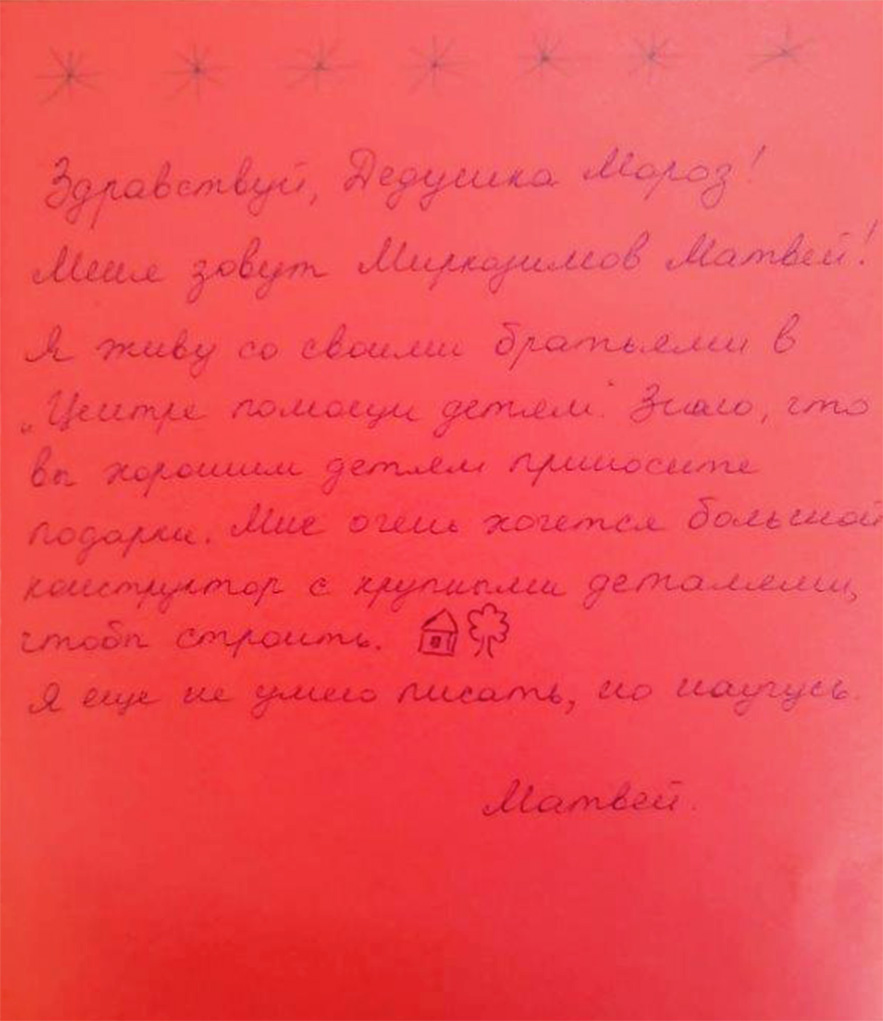 Здравствуй, Дедушка Мороз!
Меня зовут Мирказимов Матвей!
Я живу со своими братьями в
„Центре помощи детям". Знаю, что
вы хорошим детям приносите
подарки. Мне очень хочется большой
конструктор с крупными деталями,
чтобы строить.
Я еще не умею писать, но научусь.
Матвей.